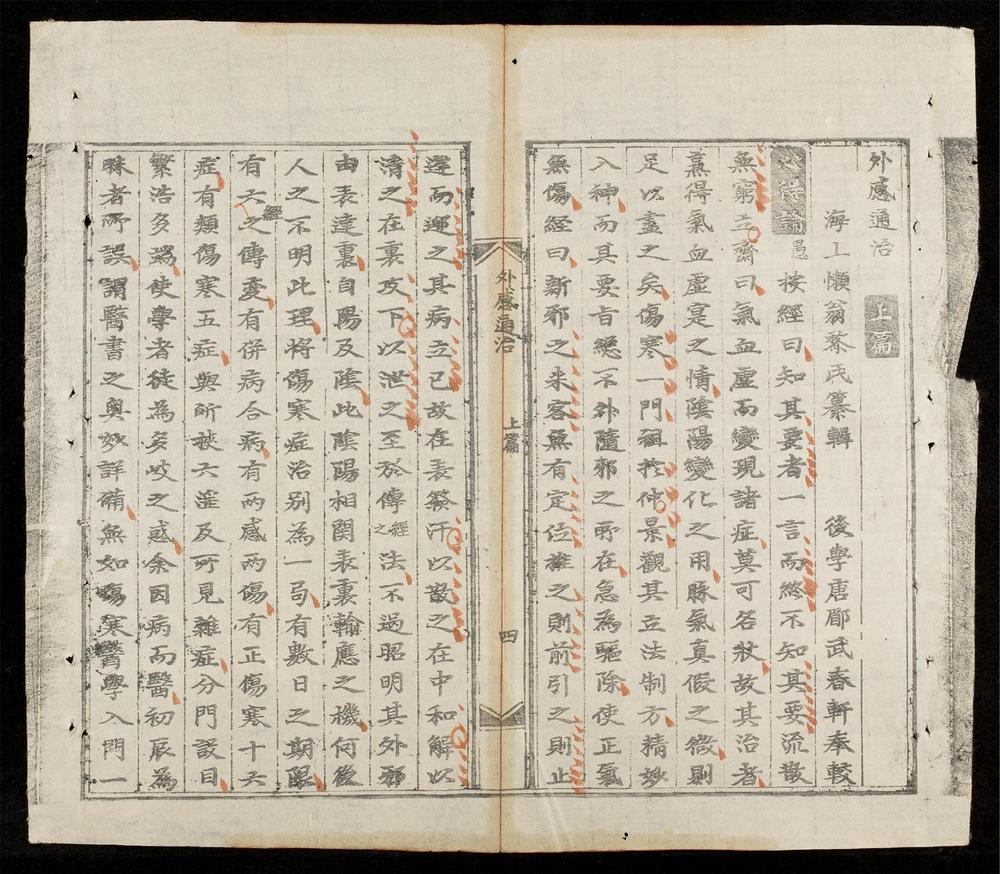 外感通治 上篇
海上懶翁黎氏纂輯 後學唐郿武春軒奉較
心得論 愚按經曰知其要者一言而終不知其要流散
無窮立齋曰氣血虛而變現諸症莫可名狀故其治者
黃得氣血虛寔之情陰陽變化之用脉氣真假之微則
足以盡之矣傷寒一門祖於仲景觀其立法制方精妙
入神而其要旨總不外隨邪之所在急為驅除使正氣
無傷經曰新邪之来客無有定位推之則前引之則止
逆而迎之其病立已故在表發汗以散之在中和解以
清之在裏攻下以泄之至於傳經之法不過昭明其外邪
由表達裏自陽及陰此陰陽相関表裏輸應之機何後
人之不明此理将傷寒症治别為一局有數日之期限
有六經之傳變有併病合病有兩感兩傷有正傷寒十六
症有類傷寒五症與所挾六淫及所見雜症分門設目
繁浩多端使學者徒為多岐之惑余因病而醫初辰為
昧者所誤謂醫書之奧妙詳備無如傷寒醫學入門一
外感通治 上篇 四